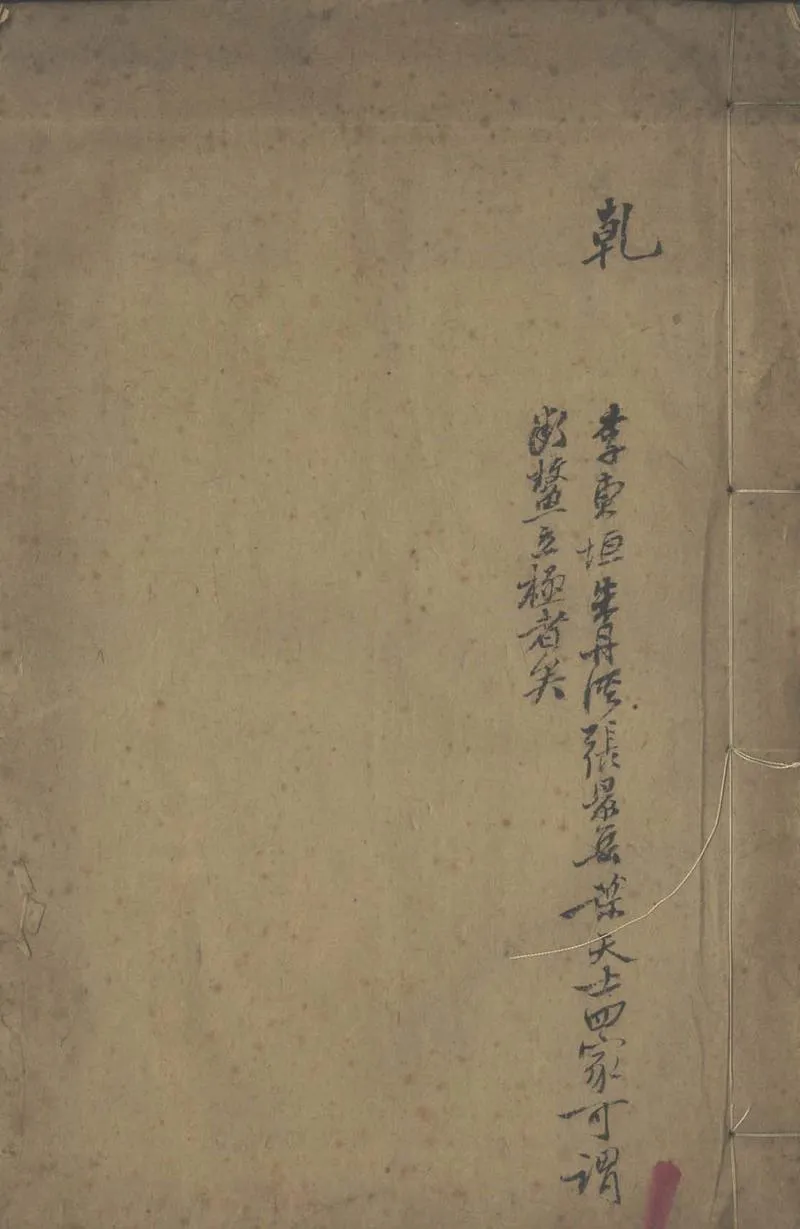 乾
李東垣朱丹溪張景岳葉天士四家可謂
斷鼇立極者矣